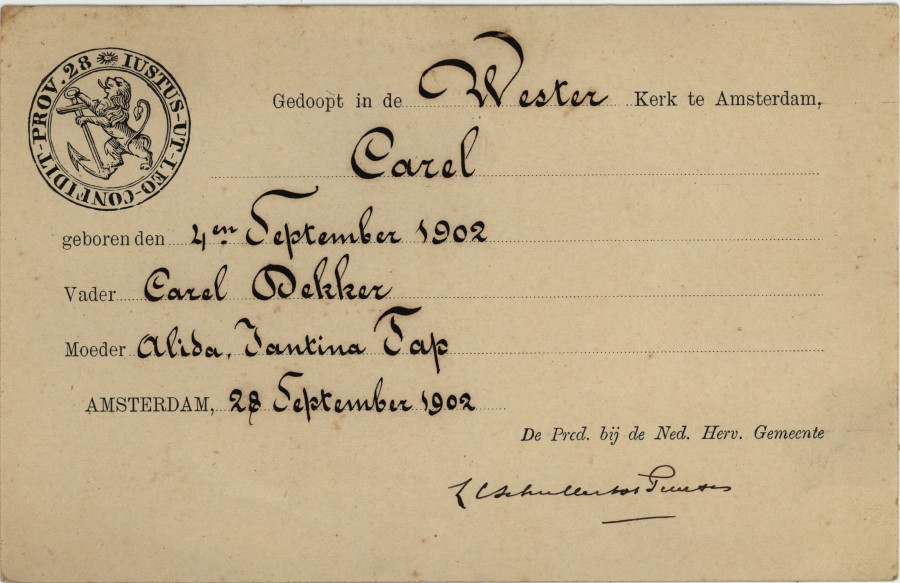 PROV. 28 IUSTUS-UT-LEO-CONFIDIT-
Gedoopt in de Wester Kerk te Amsterdam,
Carel
geboren den 4en September 1902
Vader Carel Dekker
Moeder Alida, Jantina Tap
AMSTERDAM, 28 September 1902
De Pred. bij de Ned. Herv. Gemeente